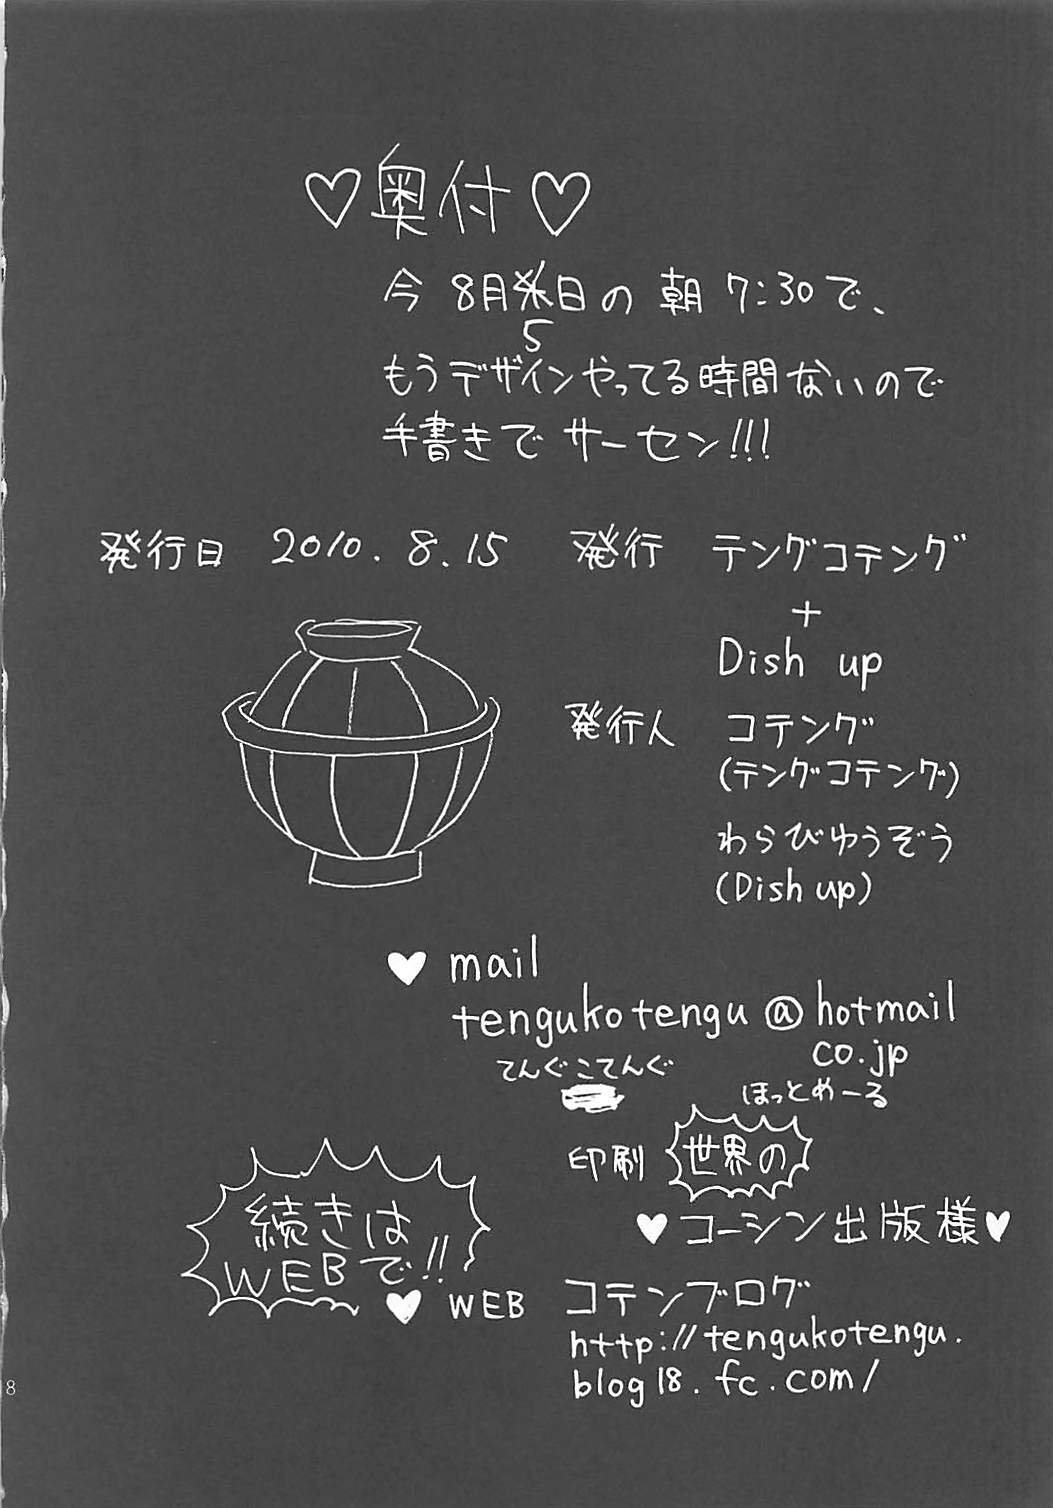 ♡奥付♡
今 8月5日の 朝 7:30で、
もうデザインやってる時間ないので
手書きで サーセン!!!
発行日 2010.8.15
発行 テングコテング
+
Dish up
発行人 コテング
(テングコテング)
わらびゆうぞう
(Dish up)
♥ mail
tengukotengu@hotmail
co.jp
てんぐこてんぐ
ほっとめーる
印刷 世界の
♥コーシン出版様♥
続きは
WEBで!!
♥ WEB コテンブログ
http://tengukotengu.
blog18.fc.com/
8